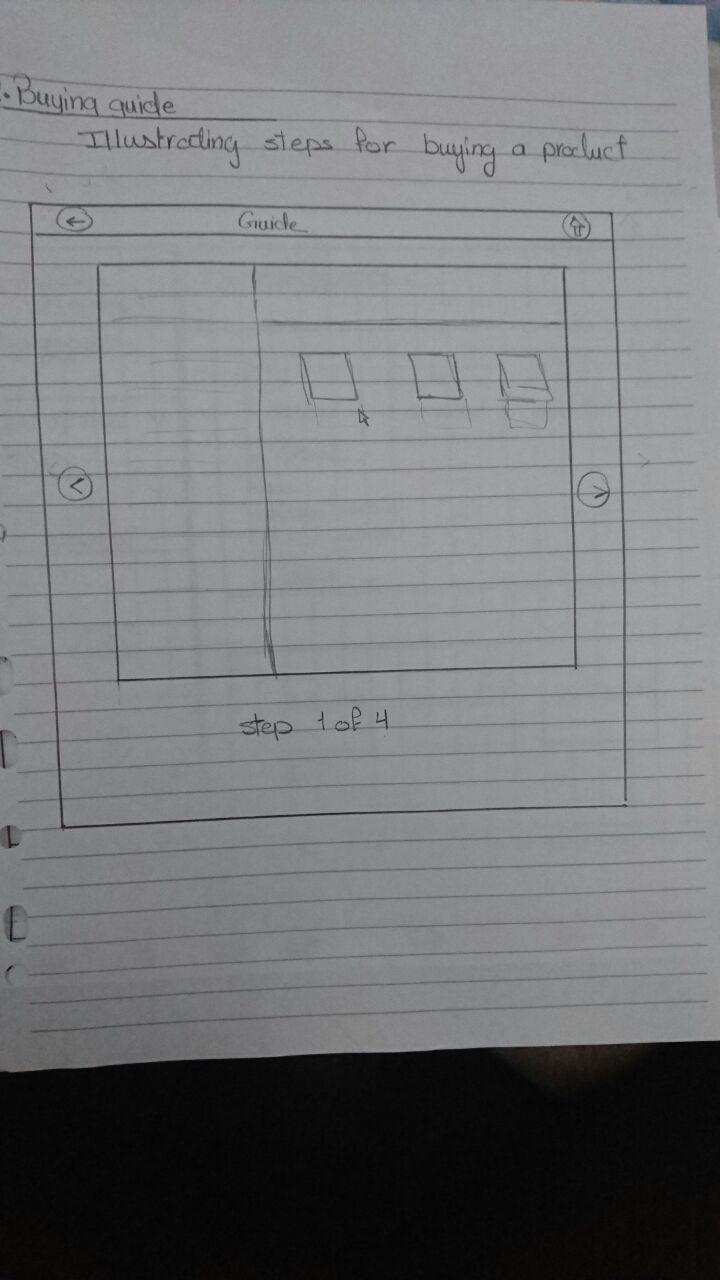 . Buying guide
Illustrating steps for buying a product
Guide
step 1 of 4